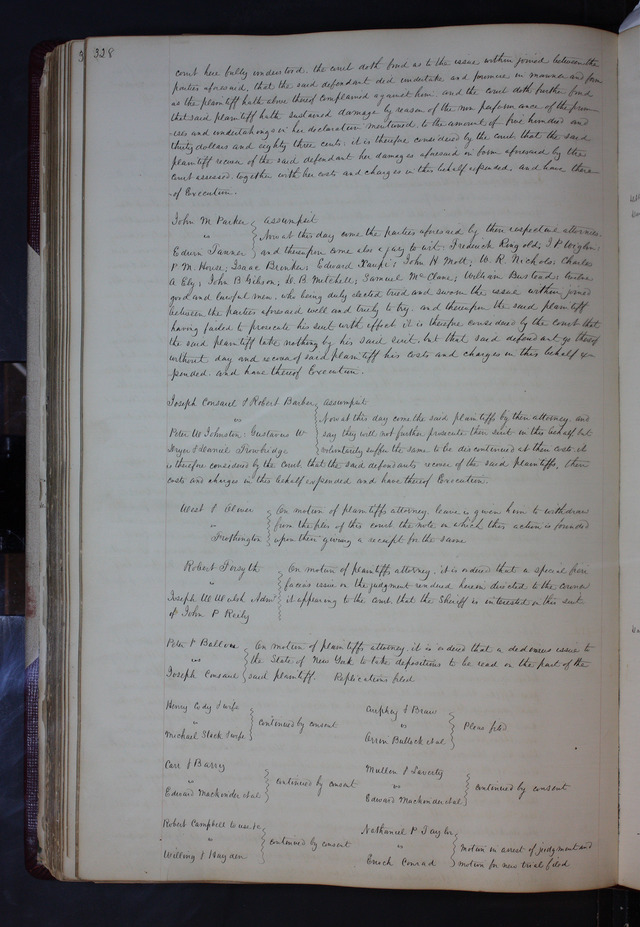 328
court here fully understood the court doth find as to the issue within joined between the
parties aforesaid, that the said defendant did undertake and promise in manner and form
as the plaintiff hath above thereof complained against him. and the court doth further find
that said plaintiff hath sustained damage by reason of the non performance of the prom
ises and undertakings in her declaration mentioned, to the amount of five hundred and
thirty dollars and eighty three cents: it is therefore considered by the court that the said
plaintiff recover of the said defendant her damages aforesaid in form aforesaid by the
court assessed together with her costs and charges in this behalf expended, and have there
of Execution.
John M Parker Assumpsit
vs Now at this day come the parties aforesaid by their respective attornies
Edwin Tanner and thereupon come also a jury to wit: Frederick Ringold;
P M. House; Isaac Brinker; Edward John H Moll; W. R. Nichols; Charles
A Ely; John B Gibson; D. B Mitchell; Samuel McClane; William twelve
good and lawful men, who being duly elected tried and sworn the issue within joined
between the parties aforesaid well and truly to try. and thereupon the said plaintiff
having failed to prosecute his suit with effect it is therefore considered by the court that
the said plaintiff take nothing by his said suit. but that said defendant go thereof
without day and recover of said plaintiff his costs and charges in this behalf ex
pended. and have thereof Execution.
Joseph Consaul & Robert Barber Assumpsit
vs Now at this day come the said plaintiffs by their attorney and
Peter W Johnston; Gustavus W say they will not further prosecute their suit in this behalf but
Dryer & Daniel Trowbridge voluntarily suffer the same to be discontinued at their costs. it
is therefore considered by the Court that the said defendants recover of the said plaintiffs, their
costs and charges in this behalf expended and have thereof Execution.
West & Oliver On motion of plaintiffs attorney leave is given him to withdraw
vs from the files of this court the note on which this action is founded
Frothington upon their giving a receipt for the same
Robert Forsyth On motion of plaintiffs attorney, it is ordered that a special fieri
vs facias issue on the judgment rendered herein directed to the coroner
Joseph W Walsh Admr it appearing to the court that the Sheriff is interested in this suit
of John P Reily
Peter P Ballou On motion of plaintiffs attorney it is ordered that a dedimus issue to
vs the State of New York to take depositions to be read on the part of the
Joseph Consaul said plaintiff. Replications filed
Henry Cody Surfs
vs continued by consent
Michael Steck Surfs
& Brown
vs Pleas filed
Orrin Bullock et al
Carr & Barry
vs continued by consent
Edward Mackinder et al
Mullen & Laverty
vs continued by consent
Edward Mackinder et al
Robert Campbell to use &c
vs continued by consent
Willing & Hayden
Nathaniel P Taylor
vs Motion in arrest of judgment and
Enoch Conrad motion for new trial filed